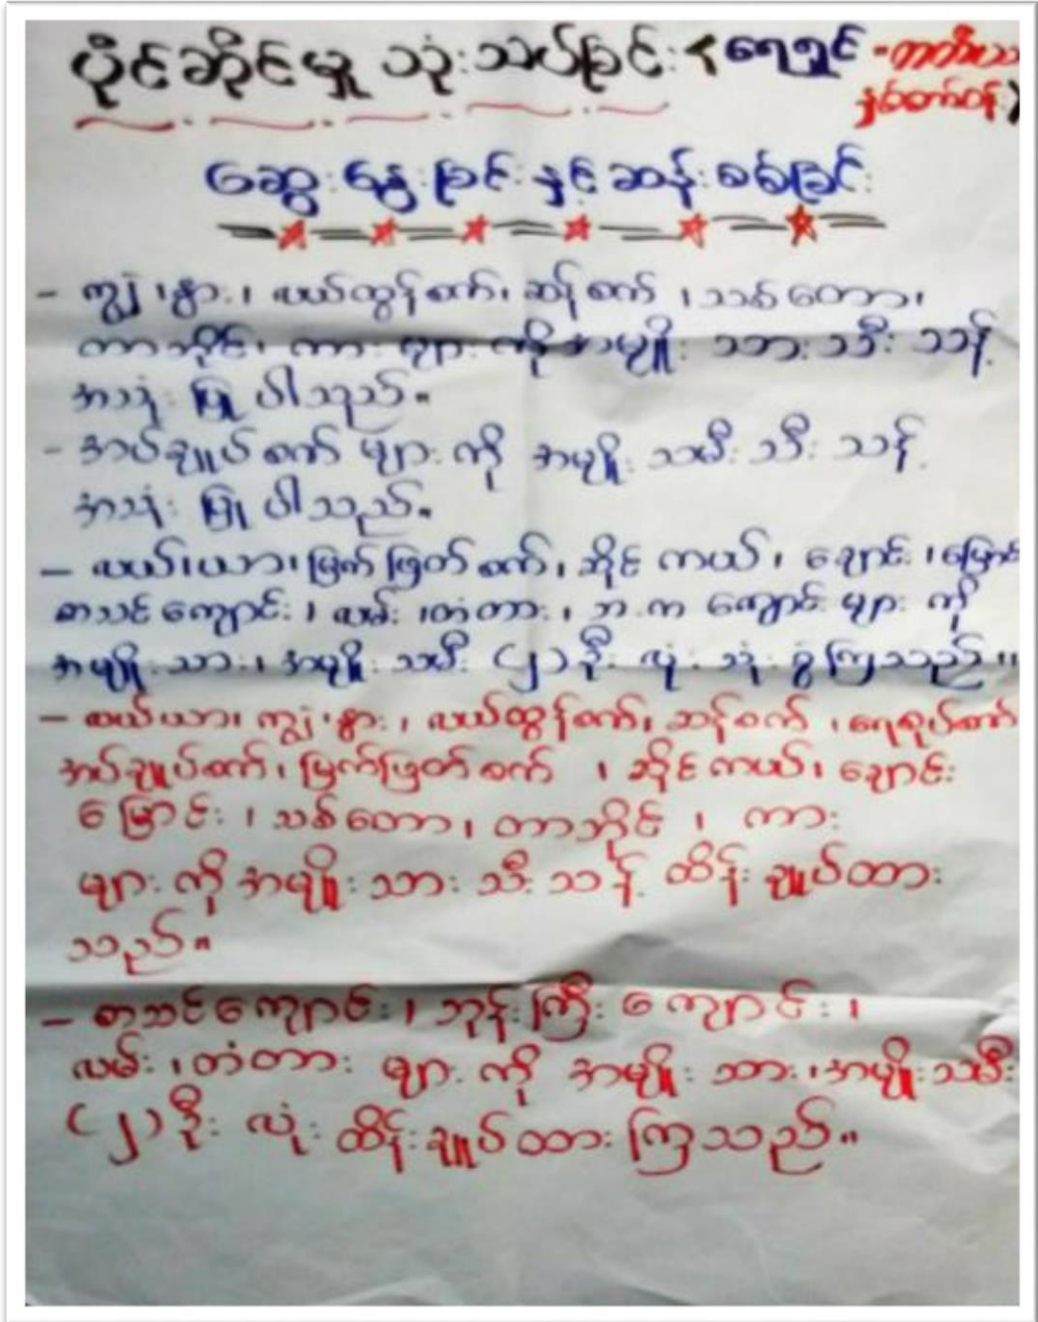 ပိုင်ဆိုင်မှု သုံးသပ်ခြင်း (ရေရှင် -ကတိယ
နှစ်တော်ဝန်)
ဆွေးနွေးခြင်းနှင့်ဆန်းစစ်ခြင်း
- ကျွဲ၊နွား၊ လယ်ထွန်စက်၊ ဆန်စက် ၊သစ်တော၊
တာဘိုင်၊ ကားများကိုအမျိုးသားသီးသန့်
အသုံးပြုပါသည်။
- အပ်ချုပ်စက်များကို အမျိုးသမီးသီးသန့်
အသုံးပြုပါသည်။
- လယ်၊ယာ၊မြက်ဖြတ်စက်၊ ဆိုင်ကယ်၊ ချောင်း၊မြောင်
စာသင်ကျောင်း၊ လမ်း၊တံတား၊ ဘ.က ကျောင်းများကို
အမျိုးသား၊ အမျိုးသမီး (၂)ဦးလုံးသုံးစွဲကြသည်။
- လယ်ယာ၊ ကျွဲ၊နွား၊ လယ်ထွန်စက်၊ ဆန်စက် ၊ရေစုပ်စက်
အပ်ချုပ်စက်၊ မြက်ဖြတ်စက် ၊ ဆိုင်ကယ်၊ ချောင်း
မြောင်း၊ သစ်တော၊ တာဘိုင် ၊ ကား
များကိုအမျိုးသားသီးသန့် ထိန်းချုပ်ထား
သည်။
- စာသင်ကျောင်း၊ ဘုန်းကြီးကျောင်း၊
လမ်း၊တံတားများကို အမျိုးသား၊အမျိုးသမီး
(၂)ဦးလုံး ထိန်းချုပ်ထားကြသည်။